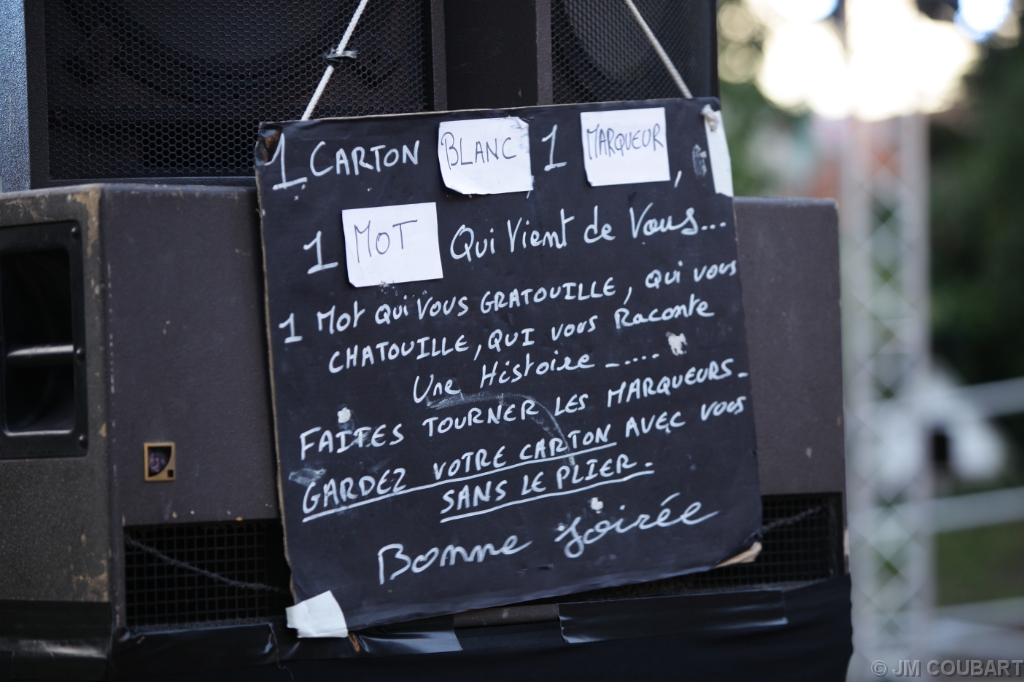 1 CARTON BLANC, 1 MARQUEUR,
1 MOT Qui Vient de Vous...
1 Mot qui vous GRATOUILLE, qui vous
CHATOUILLE, QUI vous Raconte
Une Histoire ......
FAITES TOURNER LES MARQUEURS.
GARDEZ VOTRE CARTON AVEC VOUS
SANS LE PLIER.
Bonne Soirée
© JM COUBART